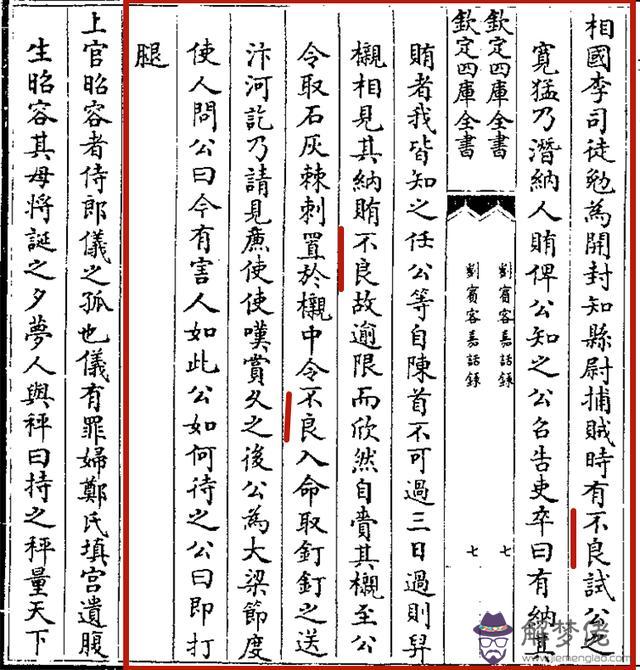 相國李司徒勉為開封知縣尉捕賊時有不良試公之
寛猛乃潛納人賄俾公知之公召告吏卒曰有納其
欽定四庫全書
劉賓客嘉話録
七
欽定四庫全書
劉賓客嘉話録
七
賄者我皆知之任公等自陳首不可過三日過則舁
櫬相見其納賄不良故逾限而欣然自賫其櫬至公
令取石灰棘刺置於櫬中令不良入命取釘釘之送
汴河訖乃請見廉使使嘆賞久之後公為大梁節度
使人問公曰今有害人如此公如何待之公曰即打
腿
上官昭容者侍郎儀之孤也儀有罪婦鄭氏填宮遺腹
生昭容其母將誕之夕夢人與秤曰持之秤量天下
解梦佬
www.jiemenglao.com